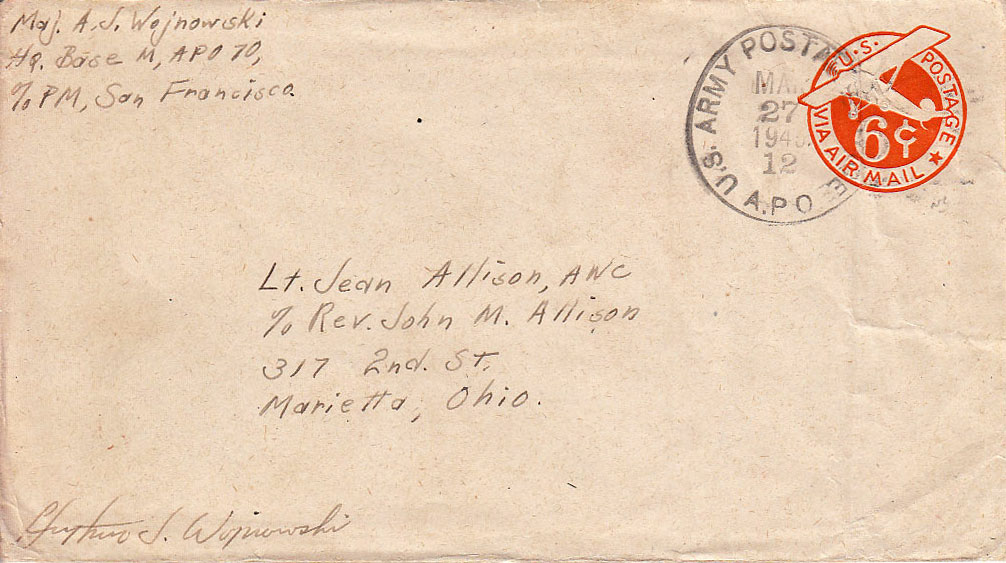 Maj. A. J. Wojnowski
Hq. Base M, APO 70,
c/o PM, San Francisco.
U.S. ARMY POSTAL
MAR
27
12
A.P.O
U.S. POSTAGE
6¢
VIA AIR MAIL
Lt. Jean Allison, ANC
c/o Rev. John M. Allison
317 2nd. St.
Marietta, Ohio.
J. Wojnowski